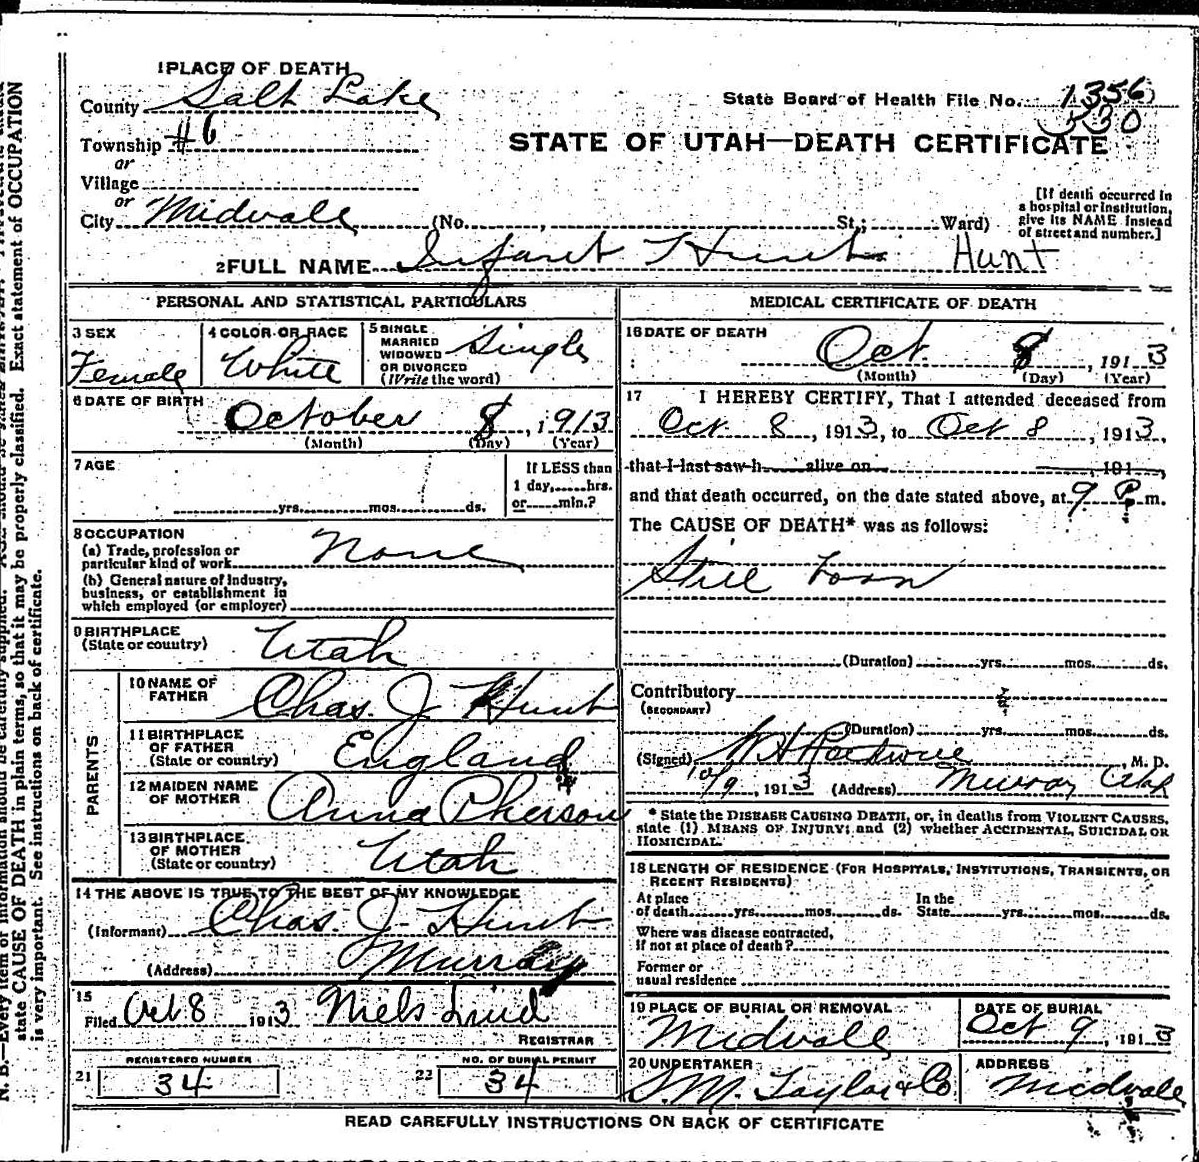 1 PLACE OF DEATH
County Salt Lake
State Board of Health File No. 1356
330
Township #6
or
Village
or
City Midvale (No. , St.; Ward)
STATE OF UTAH—DEATH CERTIFICATE
[If death occurred in a hospital or institution, give its NAME instead of street and number.]
2 FULL NAME Infant Hunt Hunt
PERSONAL AND STATISTICAL PARTICULARS
3 SEX
Female
4 COLOR OR RACE
White
5 SINGLE
MARRIED
WIDOWED
OR DIVORCED
(Write the word)
Single
6 DATE OF BIRTH
October 8, 1913
(Month) (Day) (Year)
7 AGE
yrs. mos. ds.
If LESS than
1 day, hrs.
or min.?
8 OCCUPATION
(a) Trade, profession or
particular kind of work None
(b) General nature of industry,
business, or establishment in
which employed (or employer)
9 BIRTHPLACE
(State or country) Utah
PARENTS
10 NAME OF
FATHER Chas. J. Hunt
11 BIRTHPLACE
OF FATHER
(State or country) England
12 MAIDEN NAME
OF MOTHER Anna Pherson
13 BIRTHPLACE
OF MOTHER
(State or country) Utah
14 THE ABOVE IS TRUE TO THE BEST OF MY KNOWLEDGE
(Informant) Chas. J. Hunt
(Address) Murray
15
Filed Oct 8 1913 Niels Lind
REGISTRAR
REGISTERED NUMBER
21 34
NO. OF BURIAL PERMIT
22 34
MEDICAL CERTIFICATE OF DEATH
16 DATE OF DEATH
Oct. 8, 1913
(Month) (Day) (Year)
17 I HEREBY CERTIFY, That I attended deceased from
Oct. 8, 1913, to Oct 8, 1913,
that I last saw h alive on 191 ,
and that death occurred, on the date stated above, at 9 P. m.
The CAUSE OF DEATH* was as follows:
Still born
(Duration) yrs. mos. ds.
Contributory
(SECONDARY)
(Duration) yrs. mos. ds.
(Signed) M. D.
10/9, 1913 (Address) Murray Utah
* State the DISEASE CAUSING DEATH, or, in deaths from VIOLENT CAUSES,
state (1) MEANS OF INJURY; and (2) whether ACCIDENTAL, SUICIDAL OR
HOMICIDAL.
18 LENGTH OF RESIDENCE (FOR HOSPITALS, INSTITUTIONS, TRANSIENTS, OR
RECENT RESIDENTS)
At place
of death yrs. mos. ds.
In the
State yrs. mos. ds.
Where was disease contracted,
if not at place of death?
Former or
usual residence
19 PLACE OF BURIAL OR REMOVAL
Midvale
DATE OF BURIAL
Oct 9, 1913
20 UNDERTAKER
S. M. Taylor & Co
ADDRESS
Midvale
READ CAREFULLY INSTRUCTIONS ON BACK OF CERTIFICATE
N. B.—Every item of information should be carefully supplied.
state CAUSE OF DEATH in plain terms, so that it may be properly classified. Exact statement of OCCUPATION
is very important. See instructions on back of certificate.